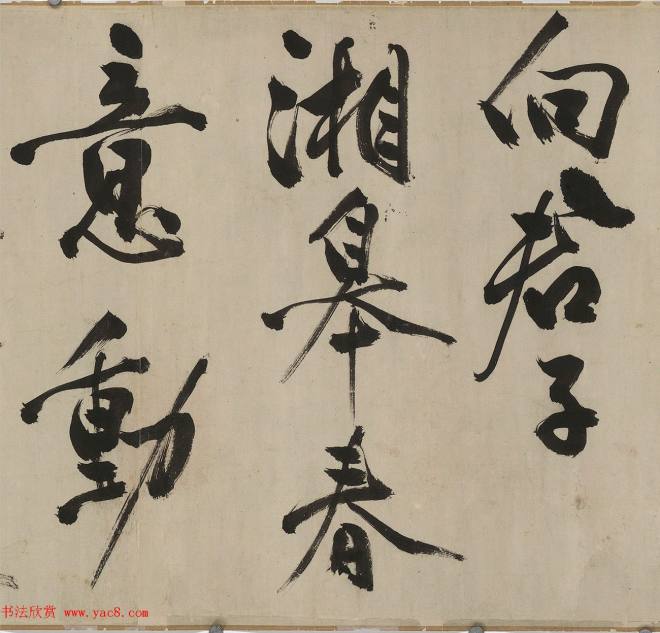 向君子
湘皋春
意動
书法欣赏 www.yac8.com